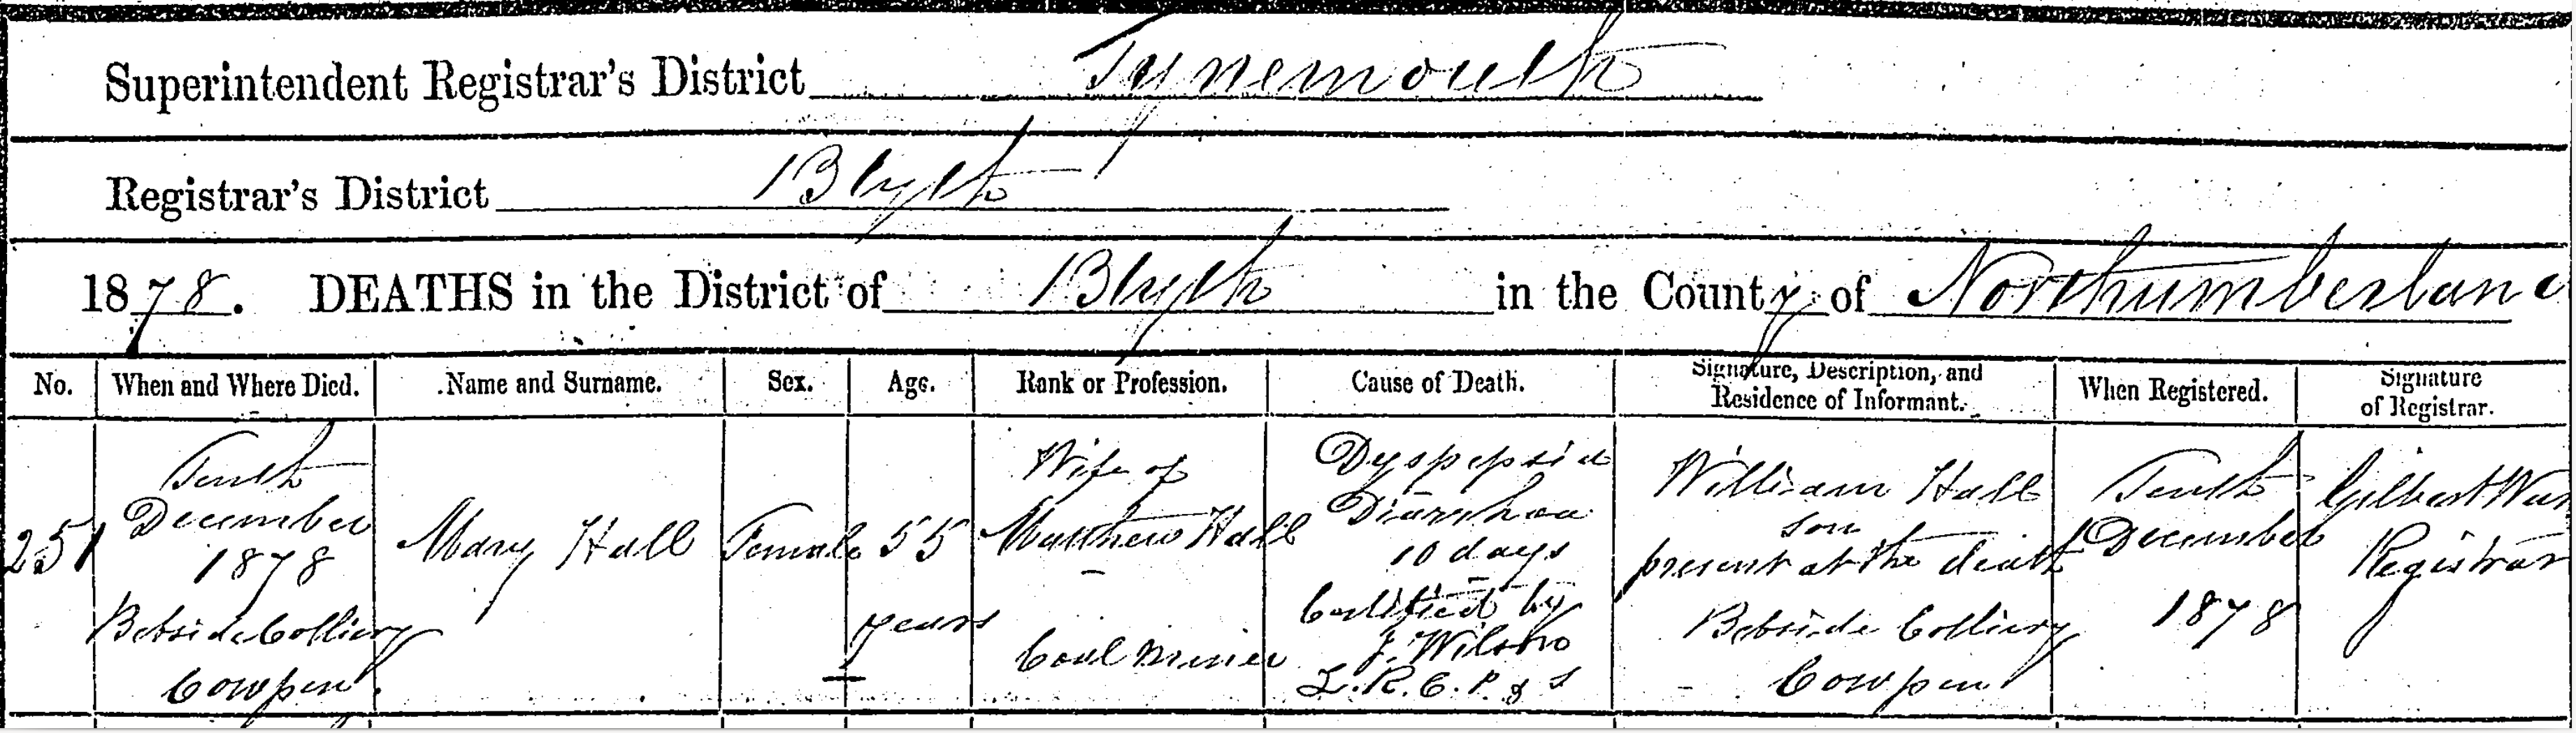 Superintendent Registrar's District Tynemouth
Registrar's District Blyth
1878. DEATHS in the District of Blyth in the County of Northumberland
No. When and Where Died. Name and Surname. Sex. Age. Rank or Profession. Cause of Death. Signature, Description, and Residence of Informant. When Registered. Signature of Registrar.
251
Tenth
December
1878
Bebside Colliery
Cowpen
Mary Hall
Female
55
years
Wife of
Matthew Hall
Coal Miner
Dyspepsia
Diarrhoea
10 days
Certified by
J. Wilson
L.R.C.P. & S
William Hall
son
present at the death
Bebside Colliery
Cowpen
Tenth
December
1878
Gilbert
Registrar